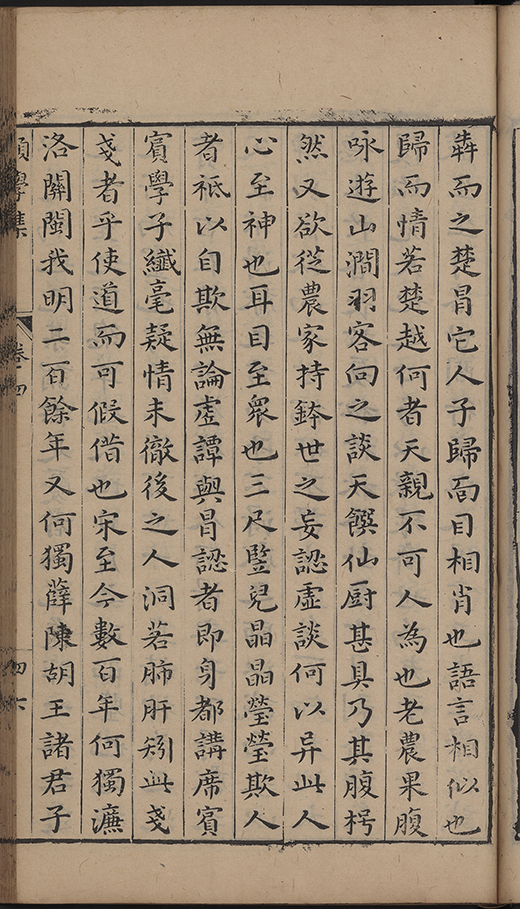 犇而之楚冒它人子歸面目相肖也語言相似也
歸而情若楚越何者天親不可人為也老農果腹
咏遊山澗羽客向之談天饌仙厨甚具乃其腹枵
然又欲從農家持鉢世之妄認虛談何以异此人
心至神也耳目至衆也三尺豎兒晶晶瑩瑩欺人
者祗以自欺無論虛譚與冒認者即身都講席賓
賓學子纖毫疑情未徹後之人洞若肺肝矧此戔
戔者乎使道而可假借也宋至今數百年何獨濂
洛關閩我明二百餘年又何獨薛陳胡王諸君子
學集
卷四
四六